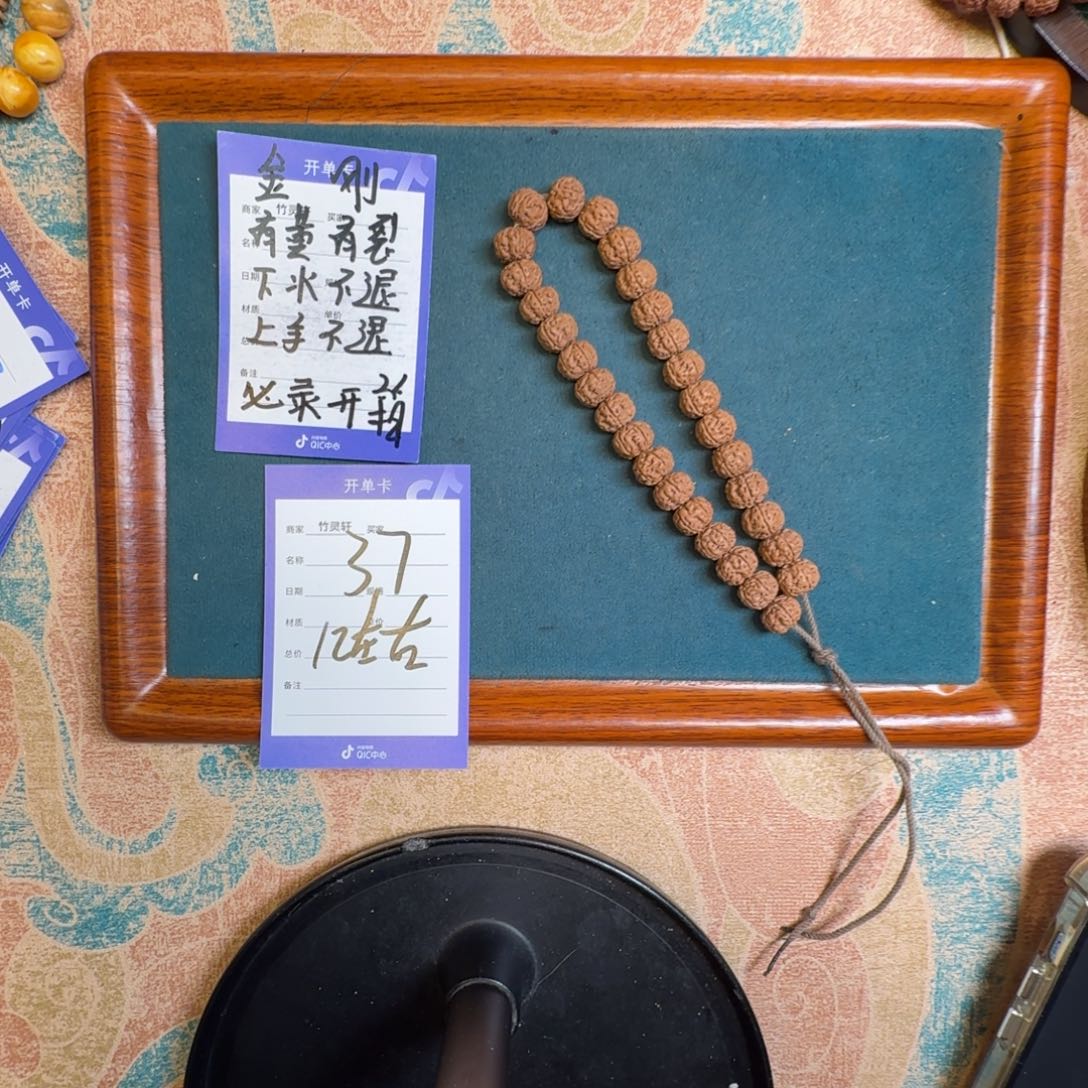 开单卡
金 刚
商家 竹灵 买家
有薰 有裂
名称
下水 不退
日期
材质 单价
上手 不退
备注
必录 开箱
抖音电商
QIC中心
开单卡
商家 竹灵轩 买家
名称
37
日期
材质
12左右
总价
备注
抖音电商
QIC中心
开单卡